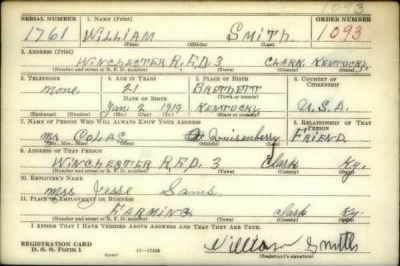 1093
SERIAL NUMBER 1. NAME (Print) ORDER NUMBER
1761 WILLIAM SMITH 1093
(First) (Middle) (Last)
2. ADDRESS (Print)
WINCHESTER R.F.D. 3 CLARK KENTUCKY
(Number and street or R. F. D. number) (Town) (County) (State)
3. TELEPHONE 4. AGE IN YEARS 5. PLACE OF BIRTH 6. COUNTRY OF CITIZENSHIP
none 21 U.S.A.
DATE OF BIRTH
Jan 2 1919 KENTUCKY
(Exchange) (Number) (Mo.) (Day) (Yr.) (State or country)
7. NAME OF PERSON WHO WILL ALWAYS KNOW YOUR ADDRESS 8. RELATIONSHIP OF THAT PERSON
Mr COLAS Quisenberry FRIEND
(Mr., Mrs., Miss) (First) (Middle) (Last)
9. ADDRESS OF THAT PERSON
WINCHESTER RFD 3 Clark Ky.
(Number and street or R. F. D. number) (Town) (County) (State)
10. EMPLOYER'S NAME
Mrs Jesse Sams
11. PLACE OF EMPLOYMENT OR BUSINESS
FARMING Clark Ky
(Number and street or R. F. D. number) (Town) (County) (State)
I AFFIRM THAT I HAVE VERIFIED ABOVE ANSWERS AND THAT THEY ARE TRUE.
REGISTRATION CARD
D. S. S. Form 1 William Smith
(Registrant's signature)